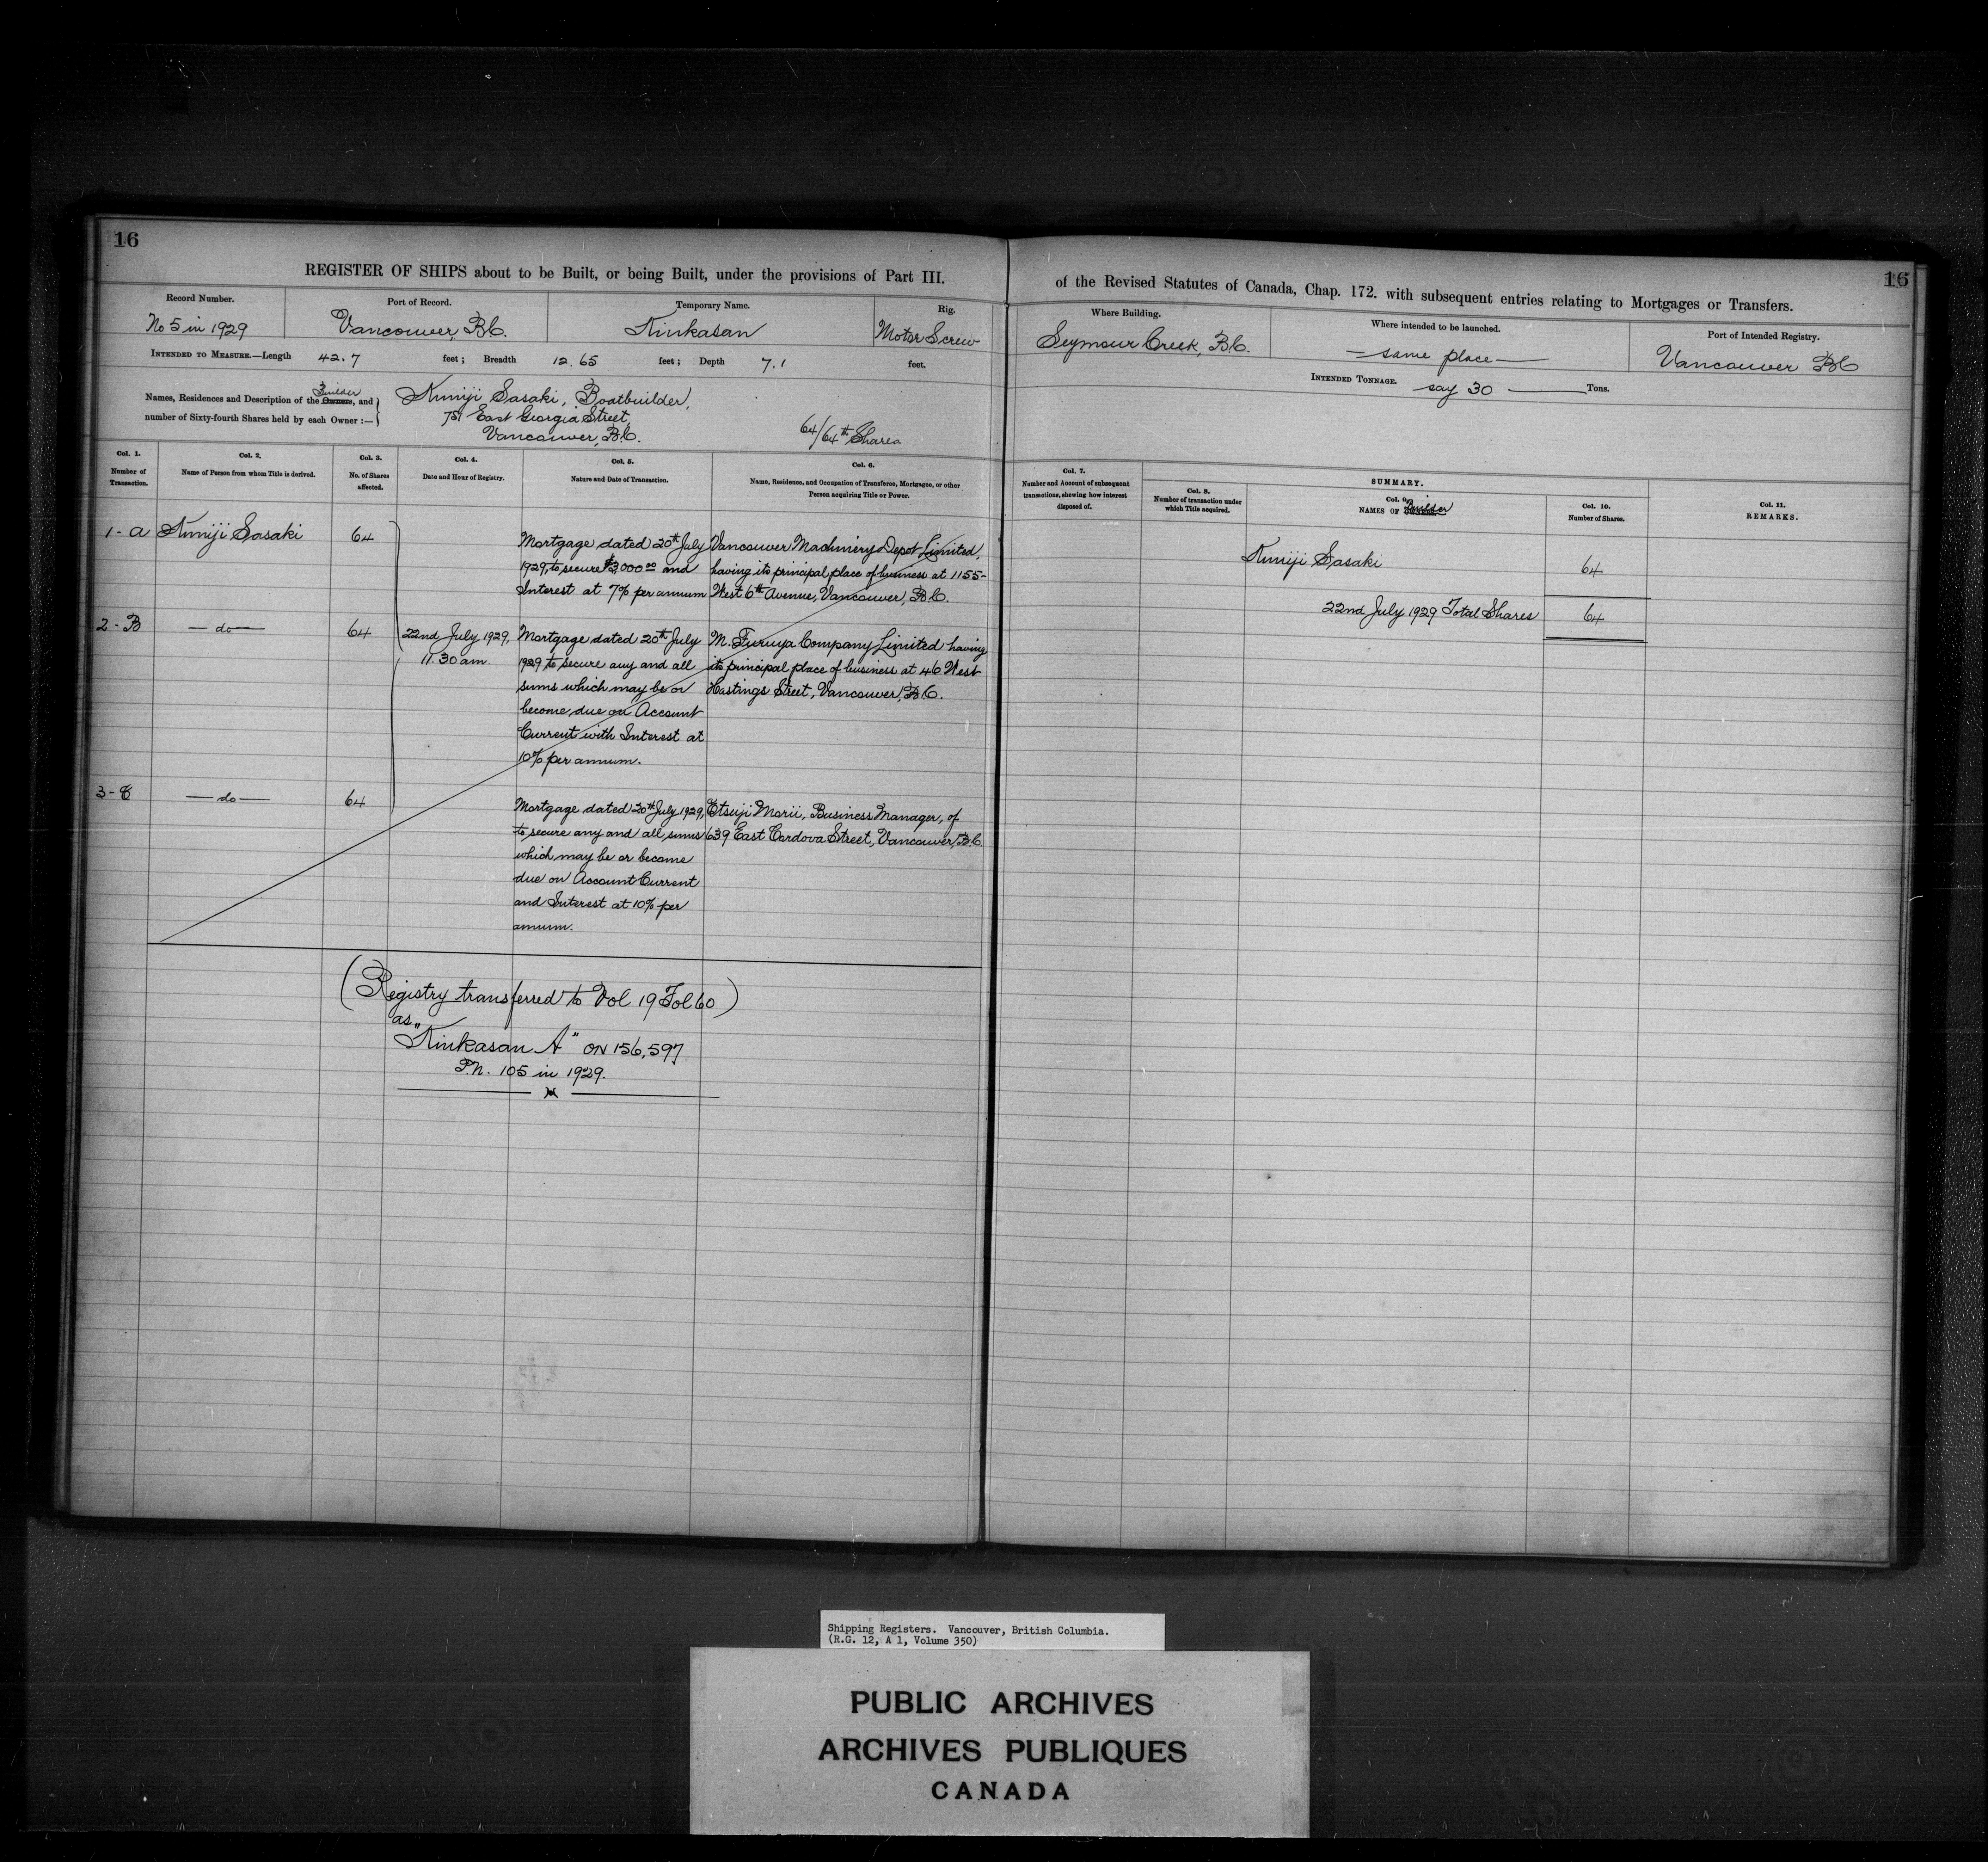 16
REGISTER OF SHIPS about to be Built, or being Built, under the provisions of Part III.
Record Number.
No 5 in 1929
Port of Record.
Vancouver, B.C.
Temporary Name.
Kinkasan
Rig.
Motor Screw
INTENDED TO MEASURE.—Length 42.7 feet; Breadth 12.65 feet; Depth 7.1 feet.
Builder
Names, Residences and Description of the Owners, and
number of Sixty-fourth Shares held by each Owner:—
Kuniji Sasaki, Boatbuilder,
East Georgia Street,
Vancouver, B.C.
64/64th Shares
Col. 1.
Number of
Transaction.
Col. 2.
Name of Person from whom Title is derived.
Col. 3.
No. of Shares
affected.
Col. 4.
Date and Hour of Registry.
Col. 5.
Nature and Date of Transaction.
Col. 6.
Name, Residence, and Occupation of Transferee, Mortgagee, or other
Person acquiring Title or Power.
1-A
Kuniji Sasaki
64
Mortgage dated 20th July
1929, to secure $3000 00 and
Interest at 7% per annum
Vancouver Machinery Depot Limited,
having its principal place of business at 1155-
West 6th Avenue, Vancouver, B.C.
2-B
— do —
64
22nd July 1929,
11.30 am.
Mortgage dated 20th July
1929 to secure any and all
sums which may be or
become due on Account
Current with Interest at
10% per annum.
M. Furuya Company Limited having
its principal place of business at 46 West
Hastings Street, Vancouver, B.C.
3-C
— do —
64
Mortgage dated 20th July 1929,
to secure any and all sums
which may be or become
due on Account Current
and Interest at 10% per
annum.
Etsuji Morii, Business Manager, of
639 East Cordova Street, Vancouver, B.C.
(Registry transferred to Vol 19 Fol 60)
as
"Kinkasan A" ON 156,597
P.N. 105 in 1929.
16
of the Revised Statutes of Canada, Chap. 172. with subsequent entries relating to Mortgages or Transfers.
Where Building.
Seymour Creek, B.C.
Where intended to be launched.
— same place —
Port of Intended Registry.
Vancouver BC
INTENDED TONNAGE. say 30 — Tons.
Col. 7.
Number and Account of subsequent
transactions, shewing how interest
disposed of.
SUMMARY.
Col. 8.
Number of transaction under
which Title acquired.
Col. 9.
NAMES OF Builder
Col. 10.
Number of Shares.
Col. 11.
REMARKS.
Kuniji Sasaki
64
22nd July 1929 Total Shares
64
Shipping Registers. Vancouver, British Columbia.
(R.G. 12, A 1, Volume 350)
PUBLIC ARCHIVES
ARCHIVES PUBLIQUES
CANADA